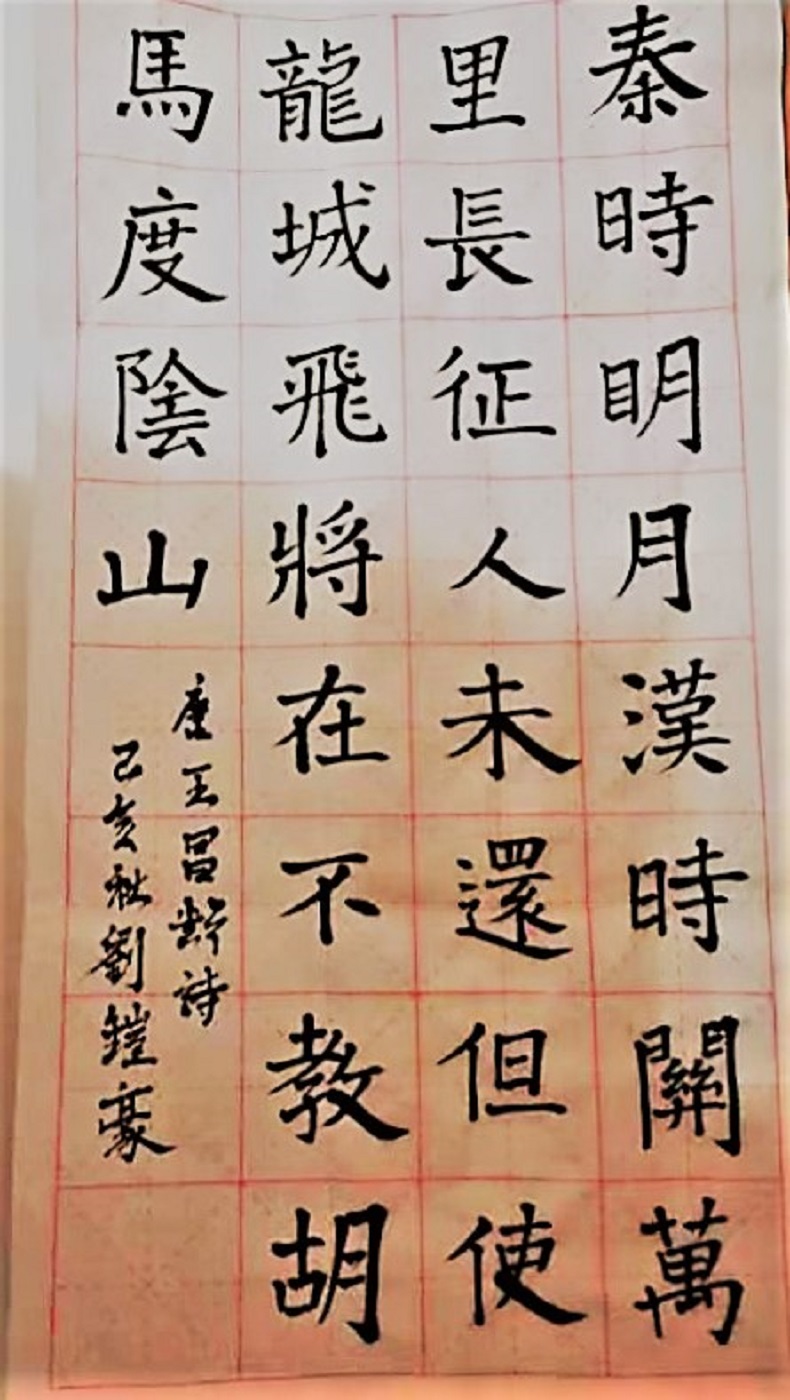 秦時明月漢時關萬
里長征人未還但使
龍城飛將在不教胡
馬度陰山
唐王昌齡詩
己亥秋劉鎧豪